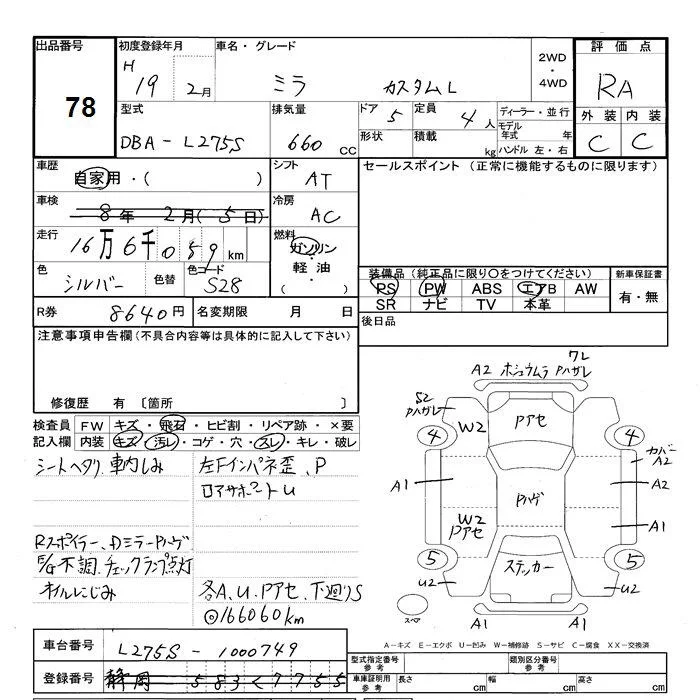 出品番号 78
初度登録年月 H 19 2月
車名・グレード ミラ カスタムL
2WD・4WD
評価点 RA
外装 内装
C C
型式 DBA-L275S
排気量 660 cc
ドア 5 定員 4人
形状 積載 kg
ディーラー・並行
モデル年式 年
ハンドル 左・右
車歴 自家用・( )
シフト AT
セールスポイント (正常に機能するものに限ります)
車検 8年 2月(5日)
冷房 AC
走行 16万6千059km
燃料 ガソリン 軽油・ ( )
色 シルバー 色替 色コード S28
装備品(純正品に限り○をつけてください)
PS PW ABS エアB AW
SR ナビ TV 本革
新車保証書 有・無
R券 8640円 名変期限 月 日
後日品
注意事項申告欄(不具合内容等は具体的に記入して下さい)
修復歴 有 〔箇所 〕
検査員 FW キズ・飛石・ヒビ割・リペア跡・×要
記入欄 内装 キズ・汚レ・コゲ・穴・スレ・キレ・破レ
シートヘタリ、車内しみ
左Fインパネ歪、P
ロアサポートU
Rスポイラー、Dミラーハゲ
E/G不調、チェックランプ点灯
オイルにじみ
各A、U、Pアセ、下廻りS
◎166060km
A2 ホシュウムラ Pハガレ ワレ
S2 Pハガレ
W2 Pアセ
4 4
カバーA2
A1 A2
Pハゲ
W2 Pアセ
A1
5 5
ステッカー
U2 U2
スペア
A1 A1
A-キズ E-エクボ U-凹み W-補修跡 S-サビ C-腐食 XX-交換済
車台番号 L275S-1000749
型式指定番号 参考 類別区分番号 参考
登録番号 静岡 583く7755
車庫証明用 参考 長さ cm 幅 cm 高さ cm